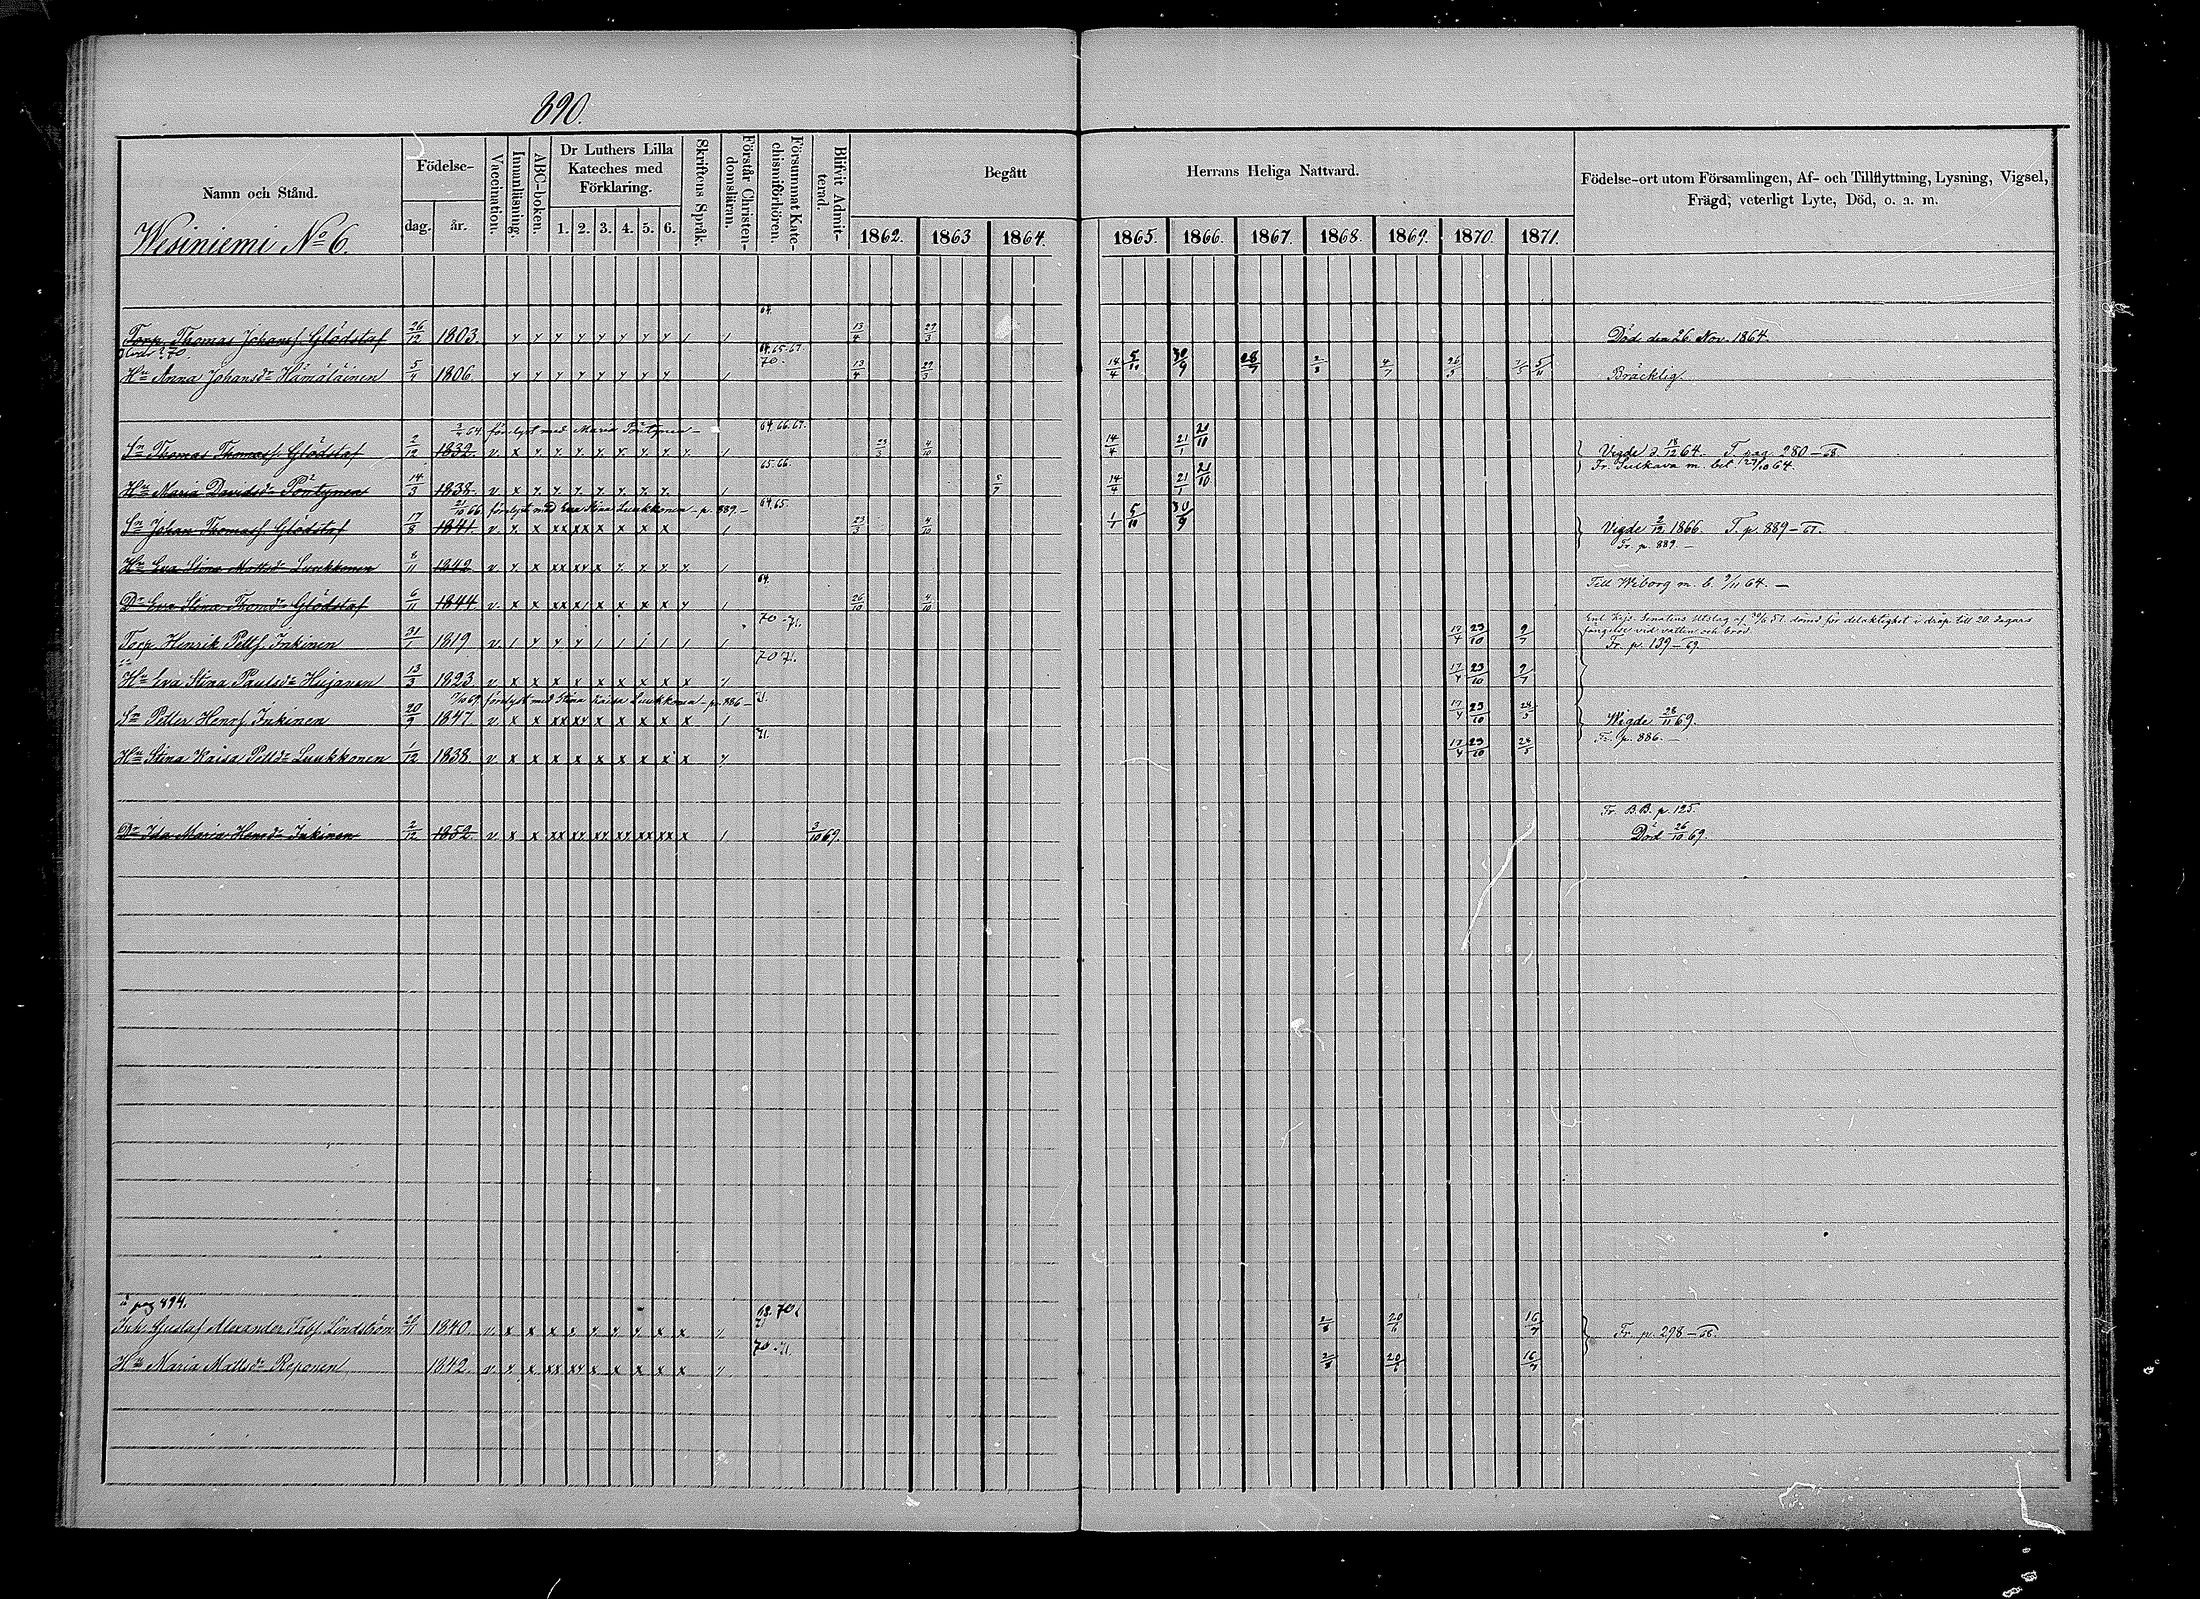 890.
Namn och Stånd.
Födelse-
dag. år.
Vaccination.
Innanläsning.
ABC-boken.
Dr Luthers Lilla Kateches med Förklaring.
1. 2. 3. 4. 5. 6.
Skriftens Språk.
Förstår Christendomsläran.
Försummat Katechismiförhören.
Blifvit Admitterad.
Begått Herrans Heliga Nattvard.
1862. 1863 1864. 1865. 1866. 1867. 1868. 1869. 1870. 1871.
Födelse-ort utom Församlingen, Af- och Tillflyttning, Lysning, Vigsel,
Frägd, veterligt Lyte, Död, o. a. m.
Wesiniemi No 6.
Torp. Thomas Johans. Glödstaf 26/12 1803. 64. 13/4 29/3 Död den 26 Nov. 1864.
Hu Anna Johansdr Hämäläinen 5/4 1806. 64.65.67. 70. 13/4 29/3 14/4 5/11 30/9 28/7 2/8 4/7 26/3 5/11 Bräcklig.
förelyst med Maria Pöntynen —
Sn Thomas Thomas. Glödstaf 2/12 1832. v. 64.66.67. 23/3 4/10 14/4 21/1 21/11 Vigde d. 18/12 64. T. pag. 280 — 68.
Hu Maria Davidsdr Pöntynen 14/3 1838. v. 65.66. 14/4 21/1 21/10 Fr. Sulkava m. bet. 27/10 64.
21/10 66 förelyst med Eva Stina Luukkonen — p. 889. —
Sn Johan Thomas. Glödstaf 17/8 1841. v. 64.65. 23/3 4/10 1/1 5/11 30/9 Vigde 2/12 1866. T. p. 889 — 67.
Hu Eva Stina Mattsdr Luukkonen 8/11 1842 v. Fr. p. 889. —
Dr Eva Stina Thomdr Glödstaf 6/11 1844 v. 64. 26/10 4/10 Till Wiborg m. b. 9/11 64. —
Torp. Henrik Petts. Inkinen 31/1 1819 v. 70-71. 17/4 23/10 9/7 Enl. Kejs. Senatens Utslag af 30/6 57. dömd för delaktighet i dråp till 20 dagars
fängelse vid vatten och bröd.
Fr. p. 139 — 69.
Hu Eva Stina Paulsdr Hujanen 13/3 1823 v. 70 71. 17/4 23/10 9/7
förelyst med Stina Kaisa Luukkonen — p. 886 —
Sn Petter Henrs. Inkinen 20/9 1847. v. 71. 17/4 23/10 28/5 Wigde 28/11 69.
Hu Stina Kaisa Pettdr Luukkonen 1/12 1838 v. 71. 17/4 23/10 28/5 Fr. p. 886. —
Fr. B.B. p. 125.
Dr Ida Maria Henrdr Inkinen 2/12 1852 v. 3/10 69. Död 26/10 69.
å pag 894.
Inh. Gustaf Alexander Lindström 1840. v. 68. 70. 71 2/8 20/6 16/7 Fr. p. 298 — 68.
Hu Maria Mattsdr Reponen 1842. v. 70-71. 2/8 20/6 16/7